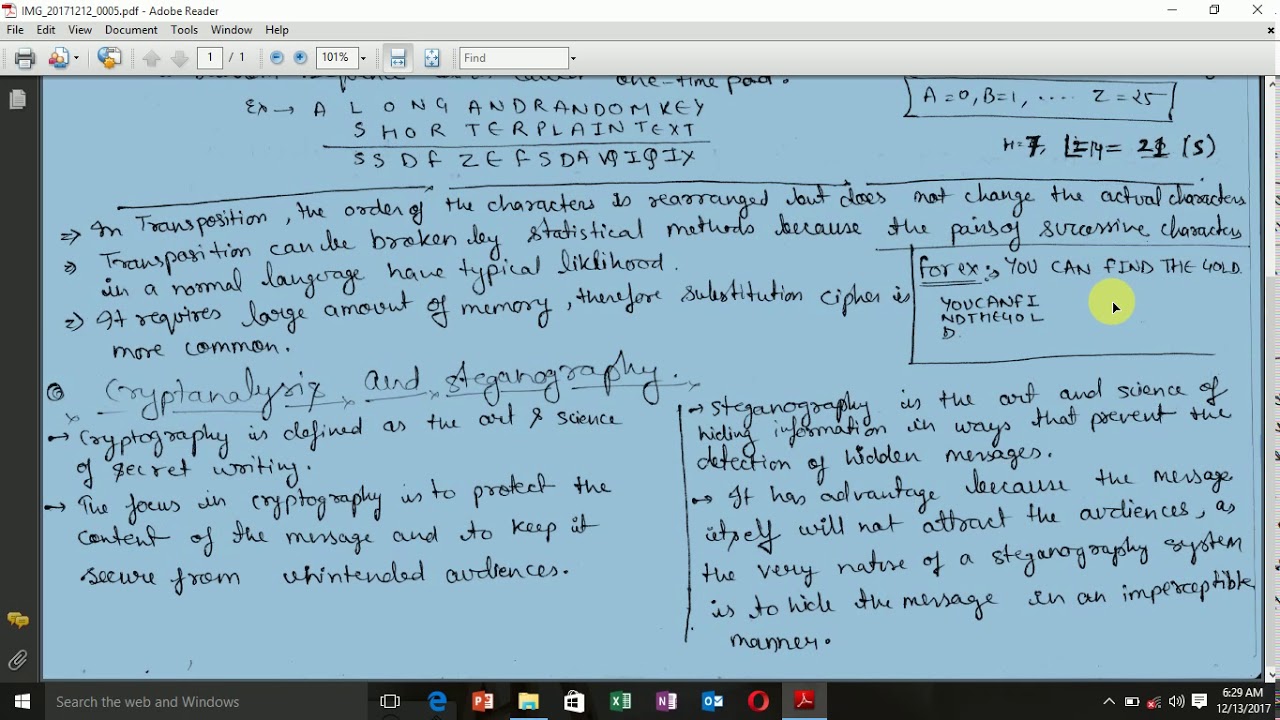 IMG_20171212_0005.pdf - Adobe Reader
File Edit View Document Tools Window Help
1 / 1 101% Find
one-time pad.
Ex → A L O N G A N D R A N D O M K E Y
S H O R T E R P L A I N T E X T
S S D F Z E F S D A V Q I Q I X
A = 0, B = 1, .... Z = 25
H = 7, = 21 (S)
⇒ In Transposition, the order of the characters is rearranged but does not change the actual characters
⇒ Transposition can be broken by statistical methods because the pairs of successive characters
in a normal language have typical liklihood.
⇒ It requires large amount of memory, therefore substitution cipher is
more common.
for ex :→ YOU CAN FIND THE GOLD.
YOUCANFI
NDTHEGOL
D.
Cryptanalysis and steganography.
→ Cryptography is defined as the art & science
of secret writing.
→ The focus in cryptography is to protect the
content of the message and to keep it
secure from unintended audiences.
→ Steganography is the art and science of
hiding information in ways that prevent the
detection of hidden messages.
→ It has advantage because the message
itself will not attract the audiences, as
the very nature of a steganography system
is to hide the message in an imperceptible
manner.
Search the web and Windows
6:29 AM
12/13/2017